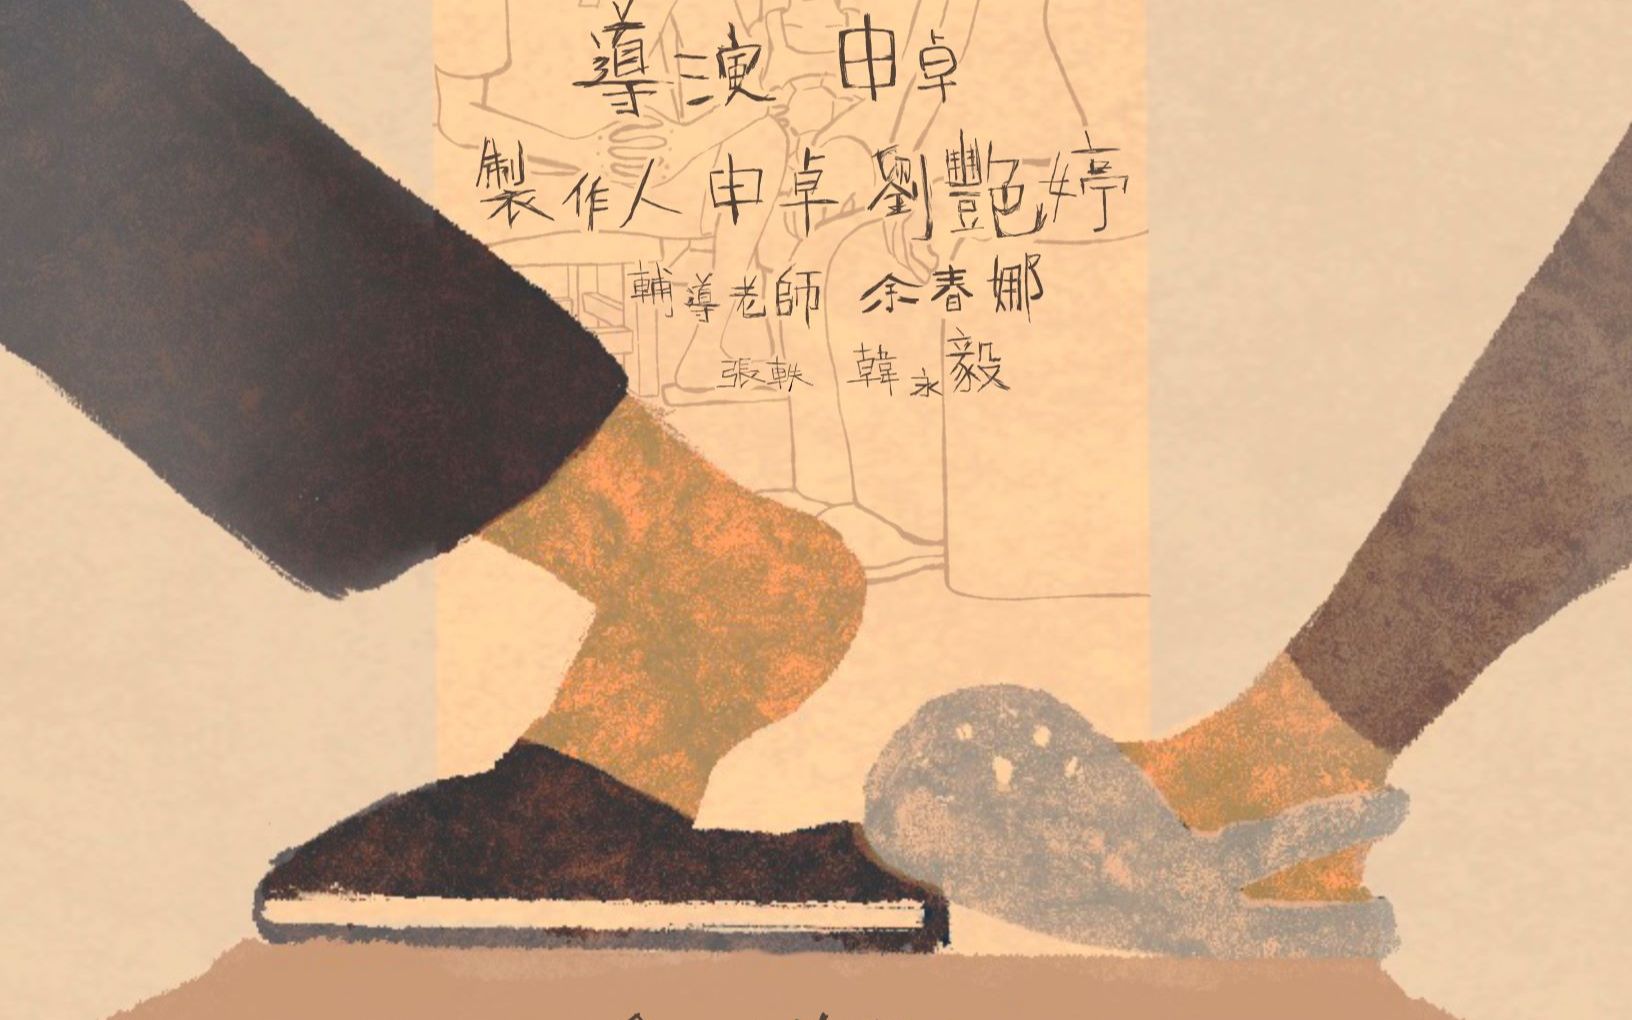 導演 申卓
製作人 申卓 劉艷婷
輔導老師 余春娜
張軼 韓永毅